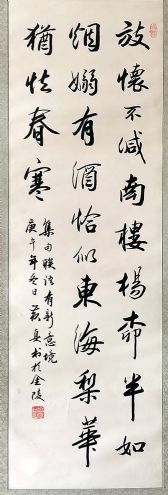 放懷不減南樓楊柳半如
烟嫋有酒恰似東海梨華
猶怯春寒
集句聯語有新意境
庚午年冬日 於金陵